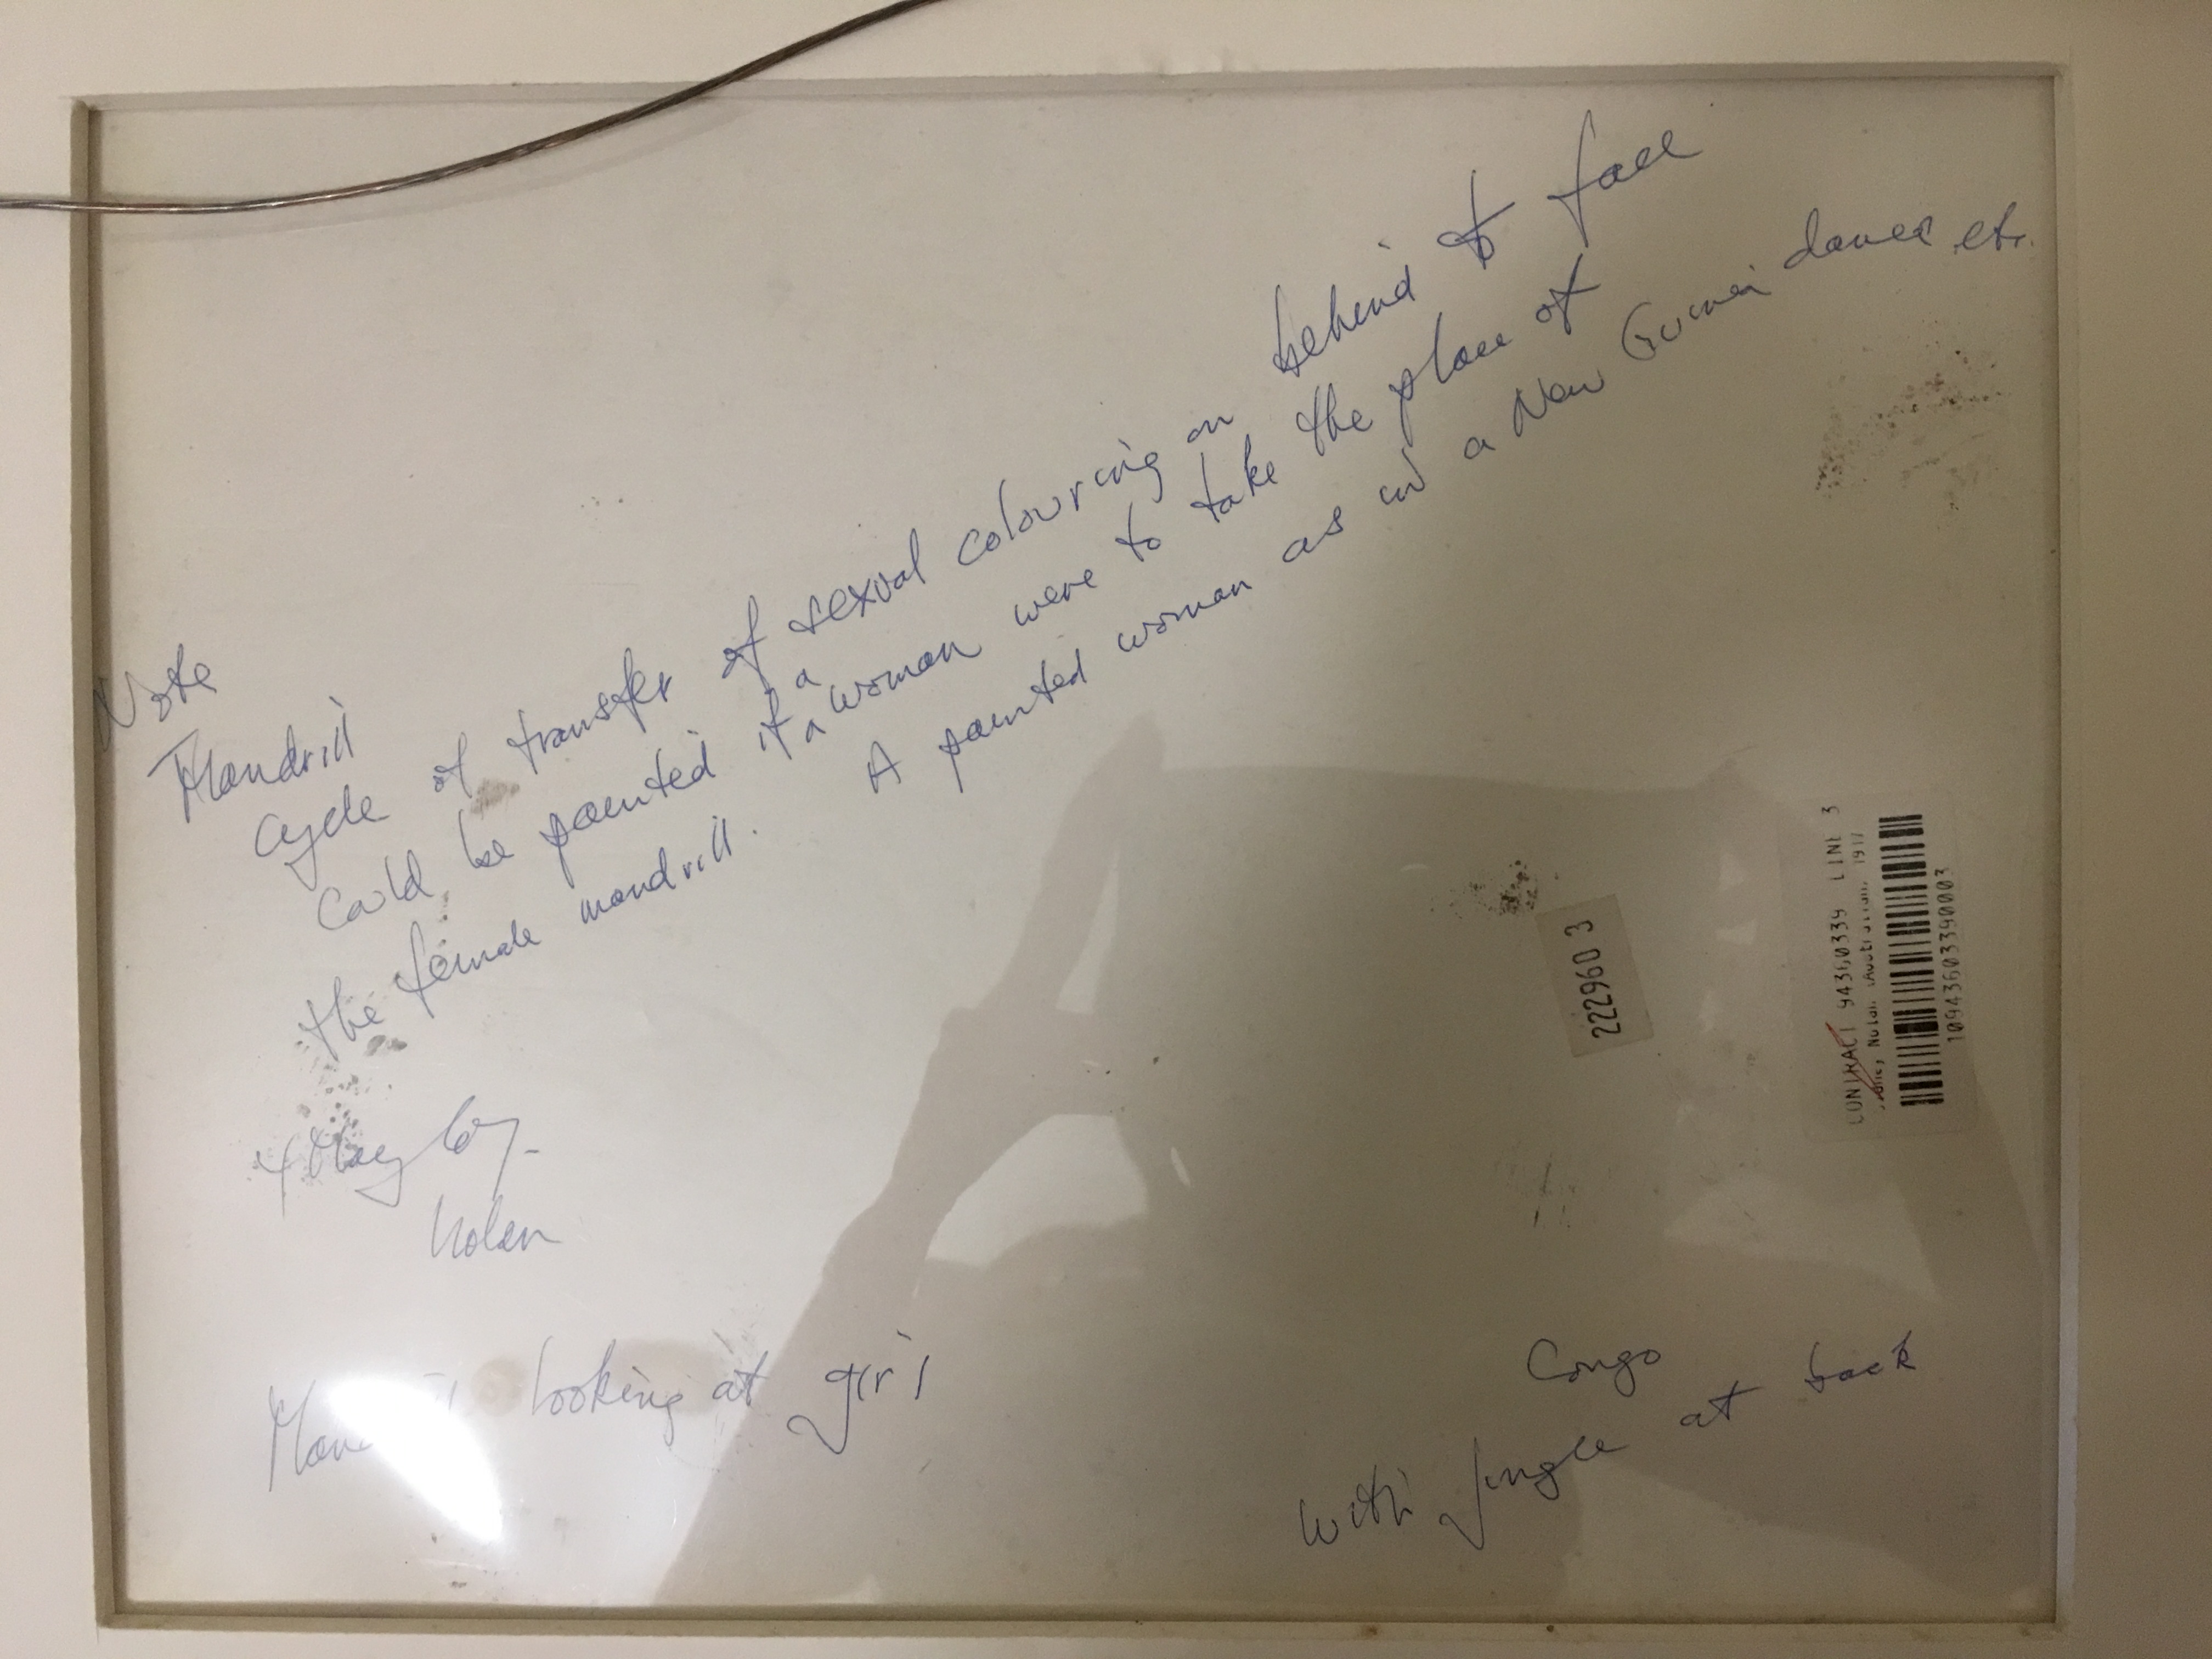 Note
Mandrill
Cycle of transfer of sexual colouring on behind to face
Could be painted if a woman were to take the place of
a
the female mandrill. A painted woman as in a New Guinea dance etc.
4 May 63.
Nolan
looking at girl
Congo
with jungle at back
222960 3
CONTRACT 94360339 LINE 3
Nolan (Australian, 1917
10943603390003